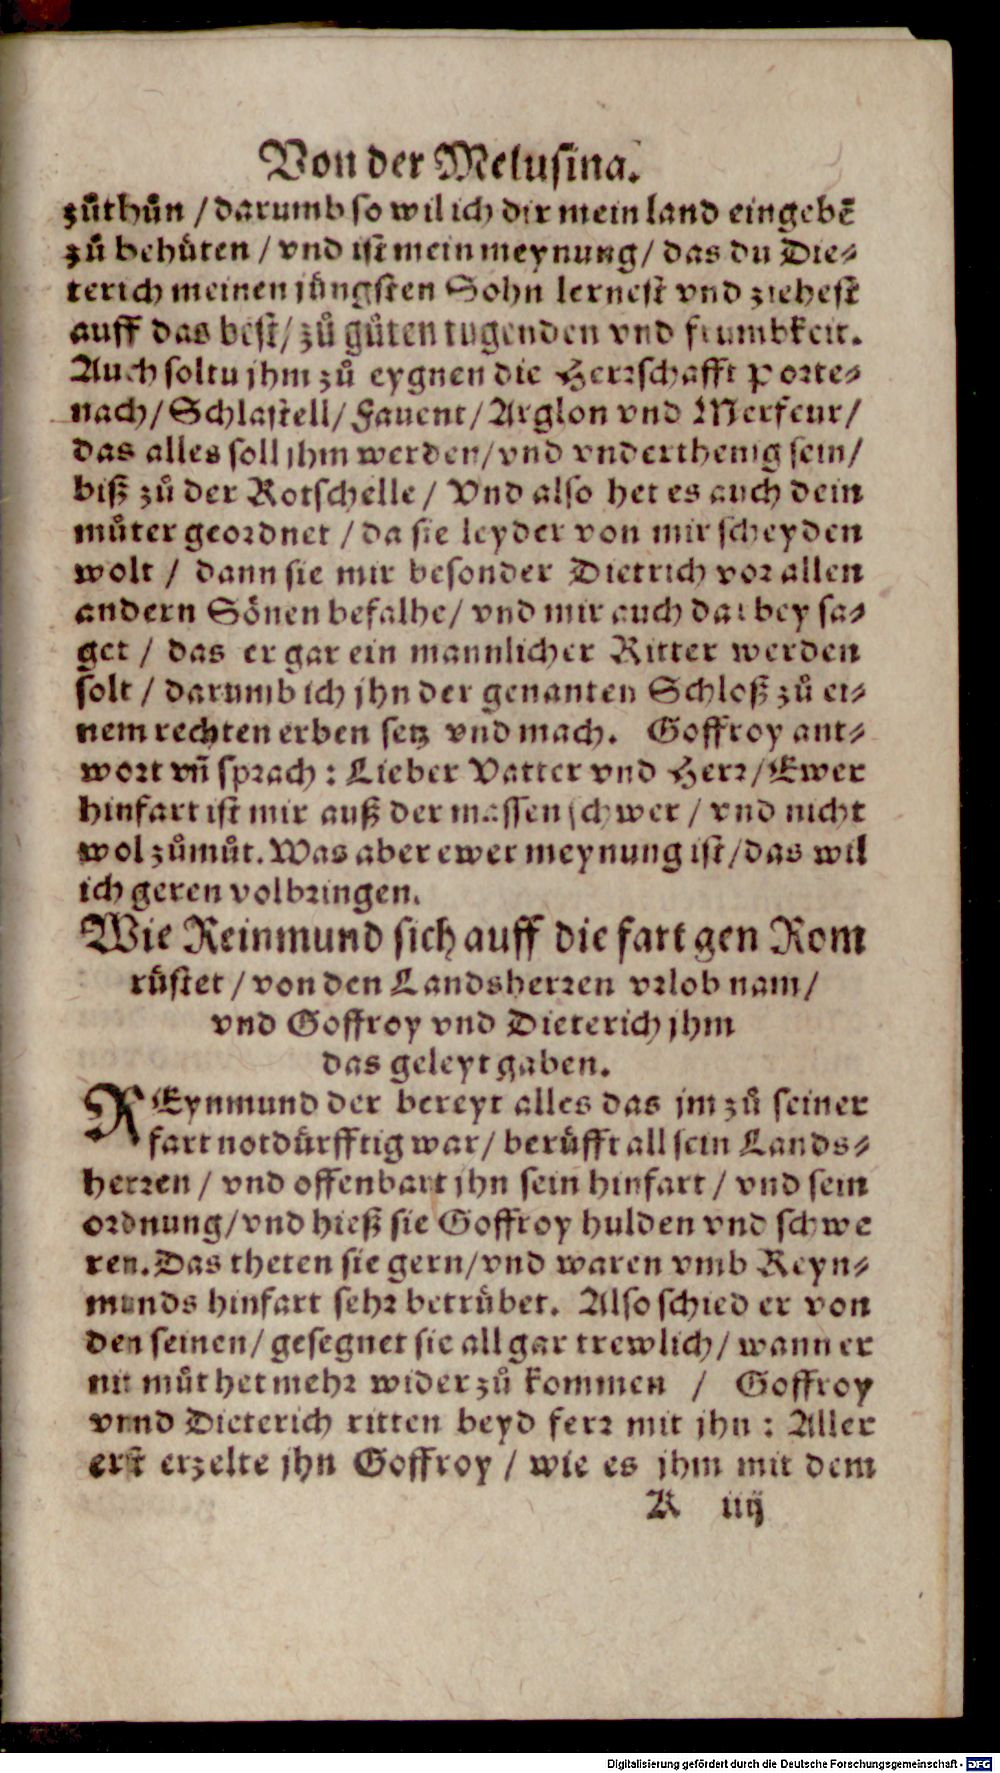 Von der Melusina.
zůthůn / darumb so wil ich dir mein land eingebẽ
zů behüten / vnd ist mein meynung / das du Die⸗
terich meinen jüngsten Sohn lernest vnd ziehest
auff das best / zů gůten tugenden vnd frumbkeit.
Auch soltu jhm zů eygnen die Herrschafft Porte⸗
nach / Schlastell / Fauent / Arglon vnd Merfeur /
das alles soll jhm werden / vnd vnderthenig sein /
biß zů der Rotschelle / Vnd also het es auch dein
můter geordnet / da sie leyder von mir scheyden
wolt / dann sie mir besonder Dietrich vor allen
andern Sönen befalhe / vnd mir auch darbey sa⸗
get / das er gar ein mannlicher Ritter werden
solt / darumb ich jhn der genanten Schloß zů ei⸗
nem rechten erben setz vnd mach. Goffroy ant⸗
wort vñ sprach : Lieber Vatter vnd Herr / Ewer
hinfart ist mir auß der massen schwer / vnd nicht
wol zůmůt. Was aber ewer meynung ist / das wil
ich geren volbringen.
Wie Reinmund sich auff die fart gen Rom
rüstet / von den Landsherren vrlob nam /
vnd Goffroy vnd Dieterich jhm
das geleyt gaben.
REynmund der bereyt alles das jm zů seiner
fart notdürfftig war / berüfft all sein Lands⸗
herren / vnd offenbart jhn sein hinfart / vnd sein
ordnung / vnd hieß sie Goffroy hulden vnd schwe
ren. Das theten sie gern / vnd waren vmb Reyn⸗
munds hinfart sehr betrübet. Also schied er von
den seinen / gesegnet sie all gar trewlich / wann er
nit můt het mehr wider zů kommen / Goffroy
vnnd Dieterich ritten beyd ferr mit jhn : Aller
erst erzelte jhn Goffroy / wie es jhm mit dem
K iiij
Digitalisierung gefördert durch die Deutsche Forschungsgemeinschaft - DFG